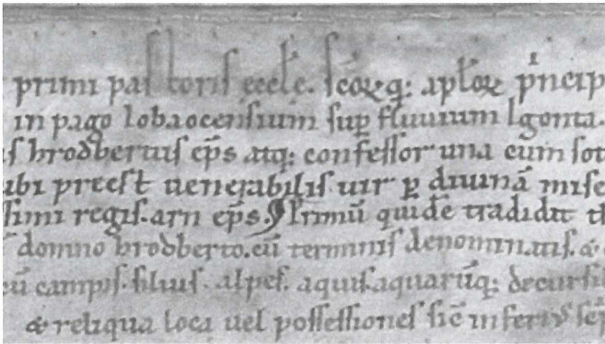 primi pastoris eccłe. scōꝝq: aplōꝝ p̄ncip
in pago lobaocensium sup̄ fluuium Igonta.
s hrodbertus ep̄s atq: confessor una cum sot
ubi preest uenerabilis uir ꝑ diuinā mise
ssimi regis. arn ep̄s. Primū quidē tradidit th
domno hrodberto. cū terminis denominatis. &
cū campis. siluis. alpes. aquis. aquarūq: decursi
& reliqua loca uel possessiones sic̄ inferius